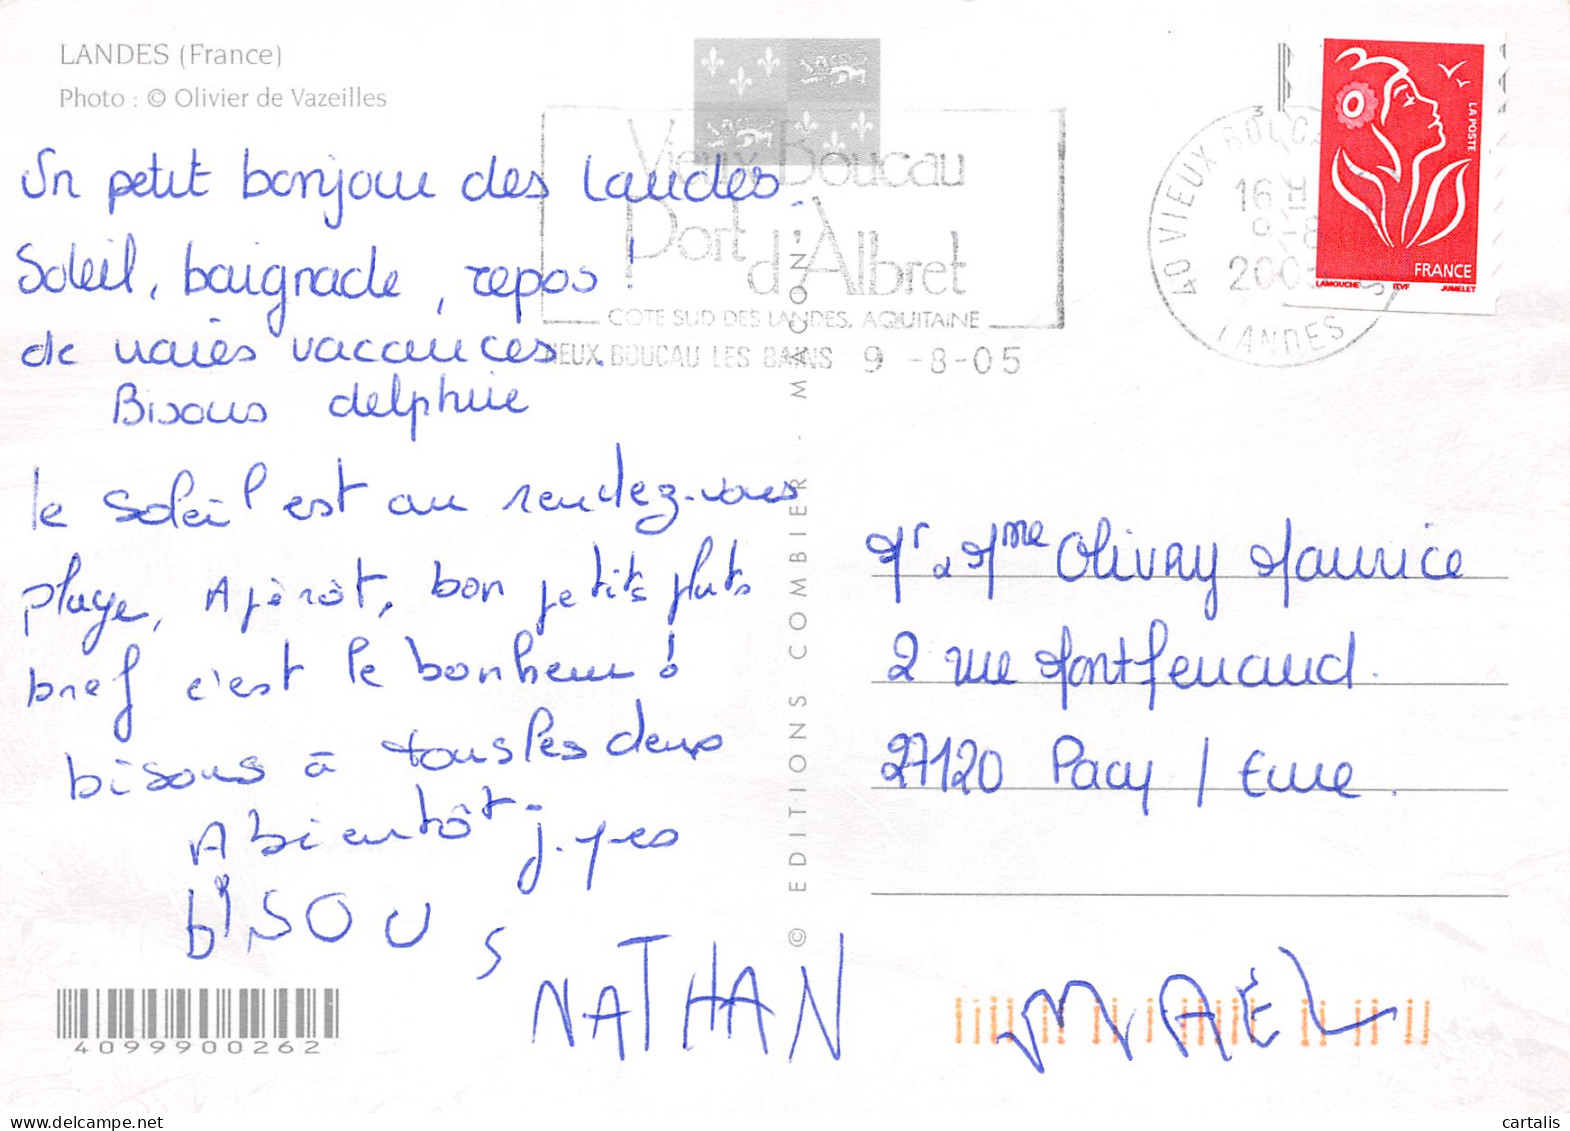 LANDES (France)
Photo : © Olivier de Vazeilles
Un petit bonjour des Landes.
Soleil, baignade, repos !
de vraies vacances.
Bisous delphine
le soleil est au rendez-vous
plage, Apérot, bon petits plats
bref c'est le bonheur !
bisous à tous les deux
A bientôt j-yves
bISOUS
NATHAN
MAËL
4099900262
© EDITIONS COMBIER - MACON
Vieux Boucau
Port d'Albret
COTE SUD DES LANDES, AQUITAINE
VIEUX BOUCAU LES BAINS 9 -8-05
40 VIEUX BOUCA
16 H
9-8
2005
LANDES
LA POSTE
FRANCE
LAMOUCHE ITVF JUMELET
Mr & Mme Olivry Maurice
2 rue Montfeuraud.
27120 Pacy / Eure.
cartalis